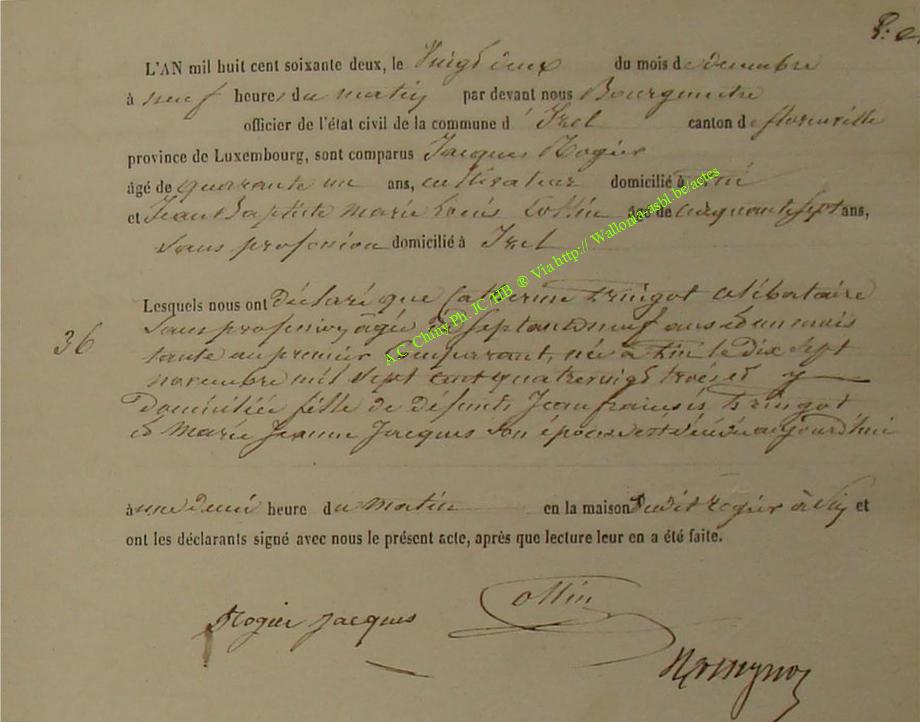 L'AN mil huit cent soixante deux, le Vingt deux du mois de decembre
à neuf heures du matin par devant nous Bourgmestre
officier de l'état civil de la commune d'Izel canton de florenville
province de Luxembourg, sont comparus Jacques Rogier
âgé de quarante un ans, cultivateur domicilié à
et Jean Baptiste Marie Louis Collin âgé de cinquante sept ans,
Sans profession domicilié à Izel
Lesquels nous ont déclaré que Catherine célibataire
36
Sans profession âgée de Septante neuf ans et un mois
tante au premier Comparant, née à le Dix Sept
novembre mil Sept cent quatrevingt trois et y
Domiciliée fille de défunts Jean françois
et Marie Jeanne Jacques Son épouse est décédée aujourd'hui
à une demi heure du matin en la maison dudit rogier à et
ont les déclarants signé avec nous le présent acte, après que lecture leur en a été faite.
Rogier Jacques Collin
A.C. Chiny Ph. JC HB ® Via http:// Wallonia-asbl.be/actes